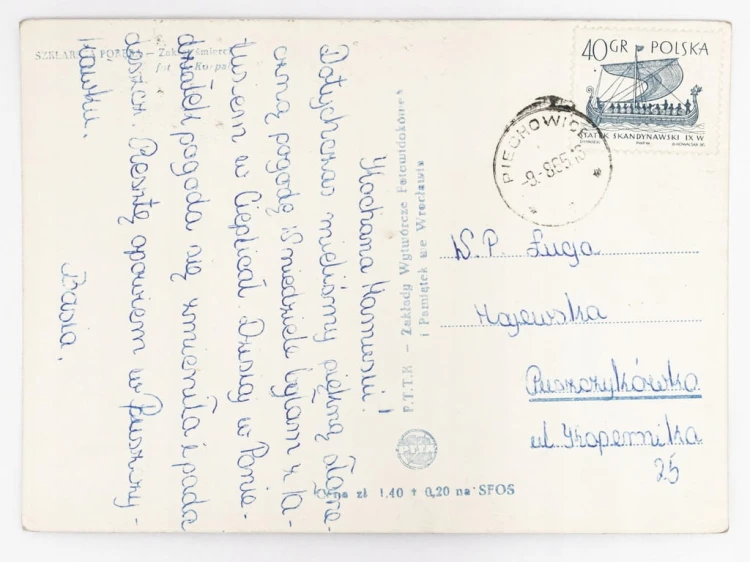 SZKLARSKA PORĘBA — Zakręt Śmierci
fot.
Kochana Mamusiu!
Dotychczas mieliśmy piękną słone-
czną pogodę. W niedzielę byłam z Ta-
tusiem w Cieplicach. Dzisiaj w Ponie-
działek pogoda się zmieniła i pada
deszcz. Resztę opowiem w Puszczy-
kówku.
Basia.
P.T.T.K — Zakłady Wytwórcze Fotowidokówek
i Pamiątek we Wrocławiu
Cena zł 1.40 + 0,20 na SFOS
40GR POLSKA
STATEK SKANDYNAWSKI IX W
PIECHOWICE
W.P. Luga
Majewska
Puszczykówko
ul. Kopernika
25